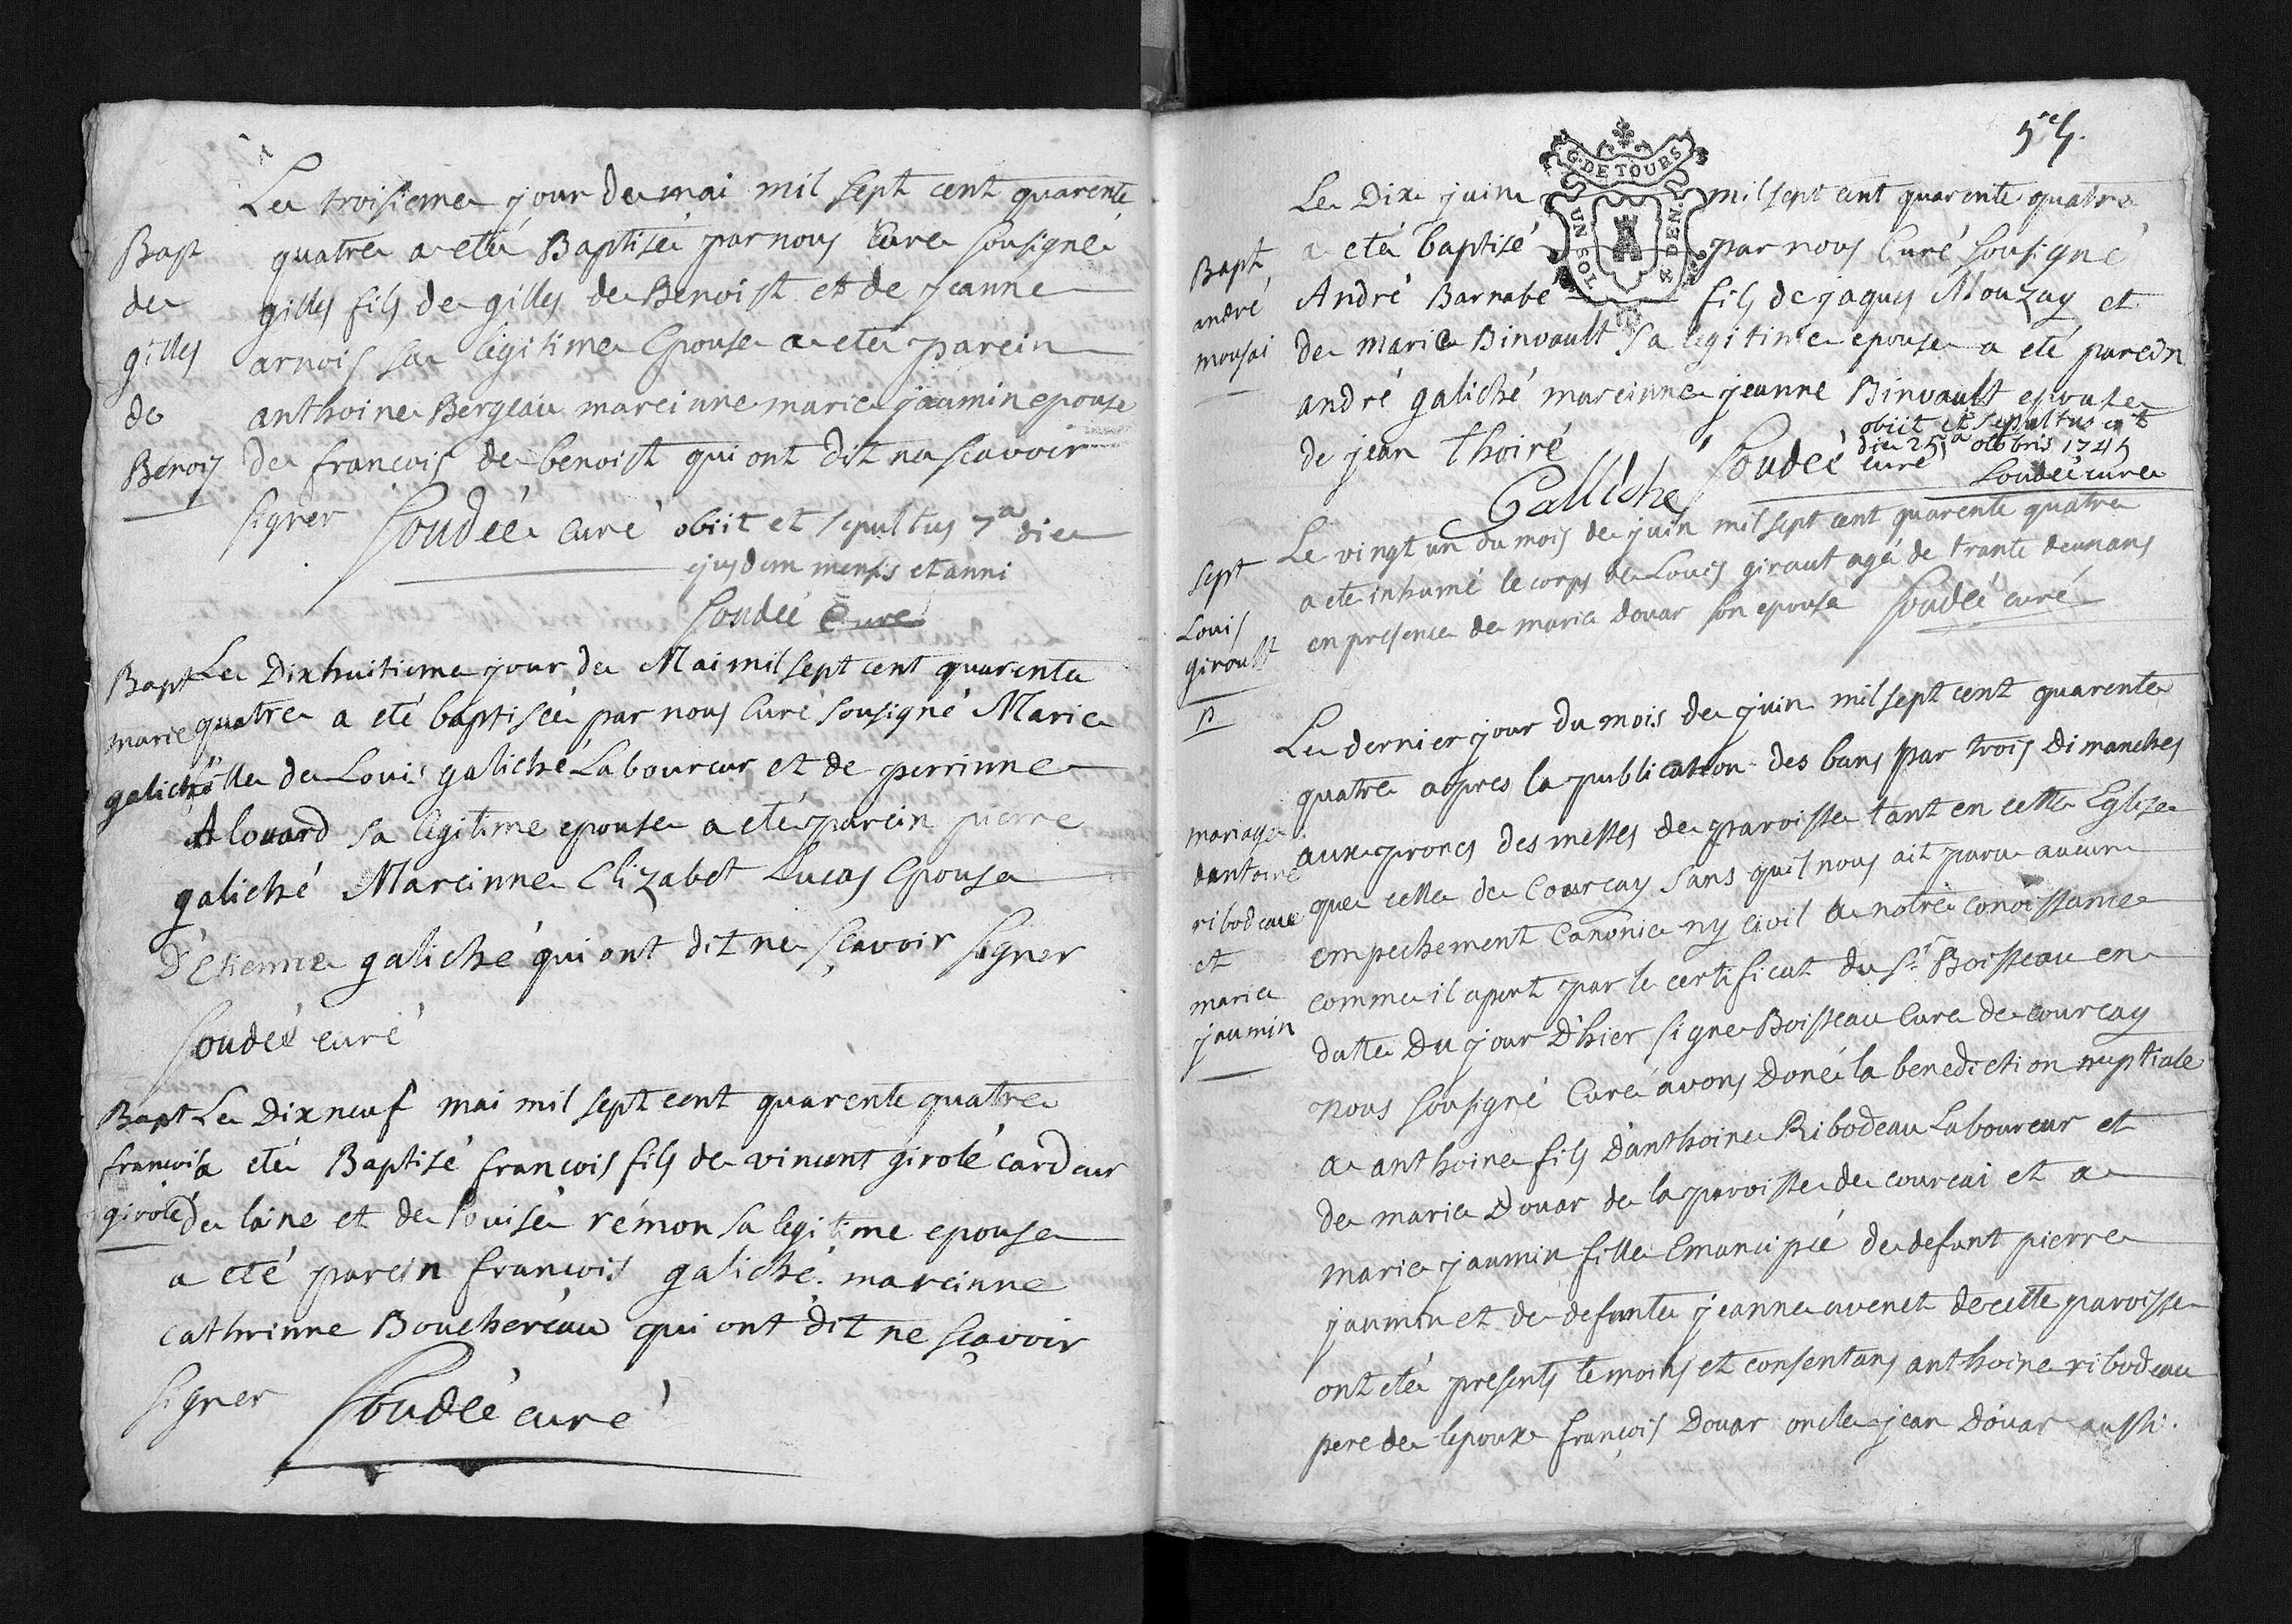 Le troisieme jour de mai mil sept cent quarente
Bapt
de
gilles
de
Benois
quatre a eté Baptisé par nous Curé sousigné
gilles fils de gilles de Benoist et de jeanne
arnois sa legitime Epouse a eté parein
anthoine Bergeau mareinne marie jaumin epouse
de francois de benoist qui ont dit ne scavoir
signer Soudée Curé obiit et sepultus 7a die
ejusdem mensis et anni
Soudée Curé
Bapt
marie
galiché
Le Dixhuitieme jour de Mai mil sept cent quarente
quatre a eté baptisée par nous Curé sousigné Marie
fille de Louis galiché Laboureur et de perrinne
Alouard sa legitime epouse a eté parein pierre
galiché Mareinne Elizabet Lucas Epouse
D'Etienne galiché qui ont dit ne sçavoir signer
Soudée curé
Bapt
francois
girolé
Le Dix neuf mai mil sept cent quarente quatre
a eté Baptisé francois fils de vincent girolé cardeur
de laine et de louise rémon sa legitime epouse
a eté parein francois galiché. mareinne
cathrinne Bouchereau qui ont dit ne sçavoir
signer Soudée curé
G. DE TOURS
UN SOL
& DEN.
Le Dix juin mil sept cent quarente quatre
Bapt
andré
mousai
a eté baptisé par nous Curé sousigné
André Barnabé fils de jaques Mouzay et
de marie Binvault sa legitime epouse a eté parein
andré galiché mareinne jeanne Binvault epouse
de jean thoiré Soudée curé
obiit et sepultus est
die 25a octobris 1745
Soudée curé
Galliche
Sept
Louis
giroust
Le vingt un du mois de juin mil sept cent quarente quatre
a eté inhumé le corps de Louis giraut agé de trante deux ans
en presence de marie douar son epouse Soudée curé
mariage
dantoine
ribodeau
et
marie
jaumin
Le dernier jour du mois de juin mil sept cent quarente
quatre apres la publication des bans par trois Dimanches
aux prones des messes de paroisse tant en cette Eglise
que celle de Courcay sans quil nous ait paru aucun
empechement Canonic ny civil a notre conoissance
comme il apert par le certificat du sr. Boisseau en
datte Du jour D'hier signe Boisseau Curé de courcay
nous sousigné Curé avons Doné la benediction nuptiale
a anthoine fils D'anthoine Ribodeau Laboureur et
de marie Douar de la paroisse de courcai et a
marie jaumin fille Emancipée de defunt pierre
jaumin et de defunte jeanne avenet de cette paroisse
ont eté presents temoins et consentans anthoine ribodeau
pere de lepoux françois Douar oncle jean Douar aussi